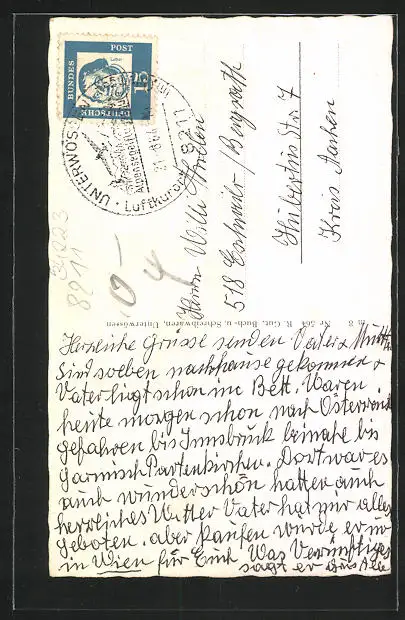 DEUTSCHE
BUNDES
POST
15
Luther
UNTERWÖSSEN
Luftkurort
8211
Herrn Willi
518 Eschweiler-/Bergrath
Hubertus Str 7
Kreis Aachen
Nr. 564 R. Gut, Buch- u. Schreibwaren, Unterwössen
31223
8211
Herzliche Grüsse senden Vater u
Sind soeben nachhause gekommen u
Vater liegt schon im Bett. Waren
heute morgen schon nach Österreich
gefahren bis Innsbruck beinahe bis
Garmisch Partenkirchen. Dort war es
auch wunderschön hatten auch
herrliches Wetter Vater hat mir alles
geboten. aber kaufen würde er nur
in Wien für Euch Was Vernünftiges
sagt er